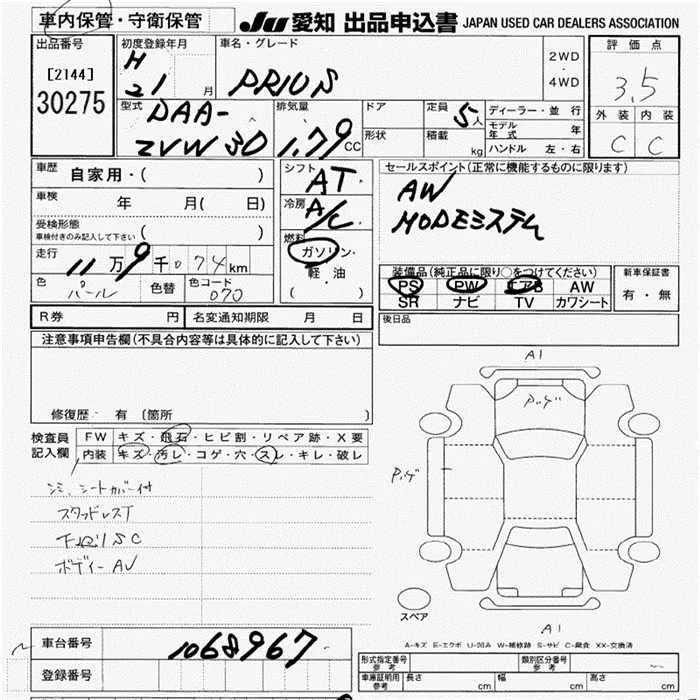 車内保管・守衛保管
JU 愛知 出品申込書 JAPAN USED CAR DEALERS ASSOCIATION
出品番号
[2144]
30275
初度登録年月
H
21 月
車名・グレード
PRIUS
2WD
・
4WD
評価点
3.5
外装 内装
C C
型式
DAA-
ZVW30
排気量
1.79 CC
ドア
定員 5 人
形状
積載 kg
ディーラー・並行
モデル年式 年
ハンドル 左・右
車歴
自家用・( )
車検 年 月( 日)
受検形態
車検付きのみ記入して下さい ( )
走行
11万9千074km
色 パール 色替 色コード 070
シフト AT
冷房 A/C
燃料
ガソリン・
軽油
( )
セールスポイント(正常に機能するものに限ります)
AW
MODEシステム
装備品(純正品に限り○をつけてください)
PS PW エアB AW
SR ナビ TV カワシート
新車保証書
有・無
R券 円 名変通知期限 月 日
後日品
注意事項申告欄(不具合内容等は具体的に記入して下さい)
修復歴・有 〔箇所 〕
検査員
記入欄
FW キズ・飛石・ヒビ割・リペア跡・X要
内装 キズ・汚レ・コゲ・穴・スレ・キレ・破レ
シミ、シートカバー付
スタッドレスT
下回りSC
ボディーAU
A1
A1
スペア
A-キズ E-エクボ U-凹み W-補修跡 S-サビ C-腐食 XX-交換済
車台番号 1068967
登録番号
形式指定番号
参考
類別区分番号
参考
車庫証明用
参考
長さ cm 幅 cm 高さ cm